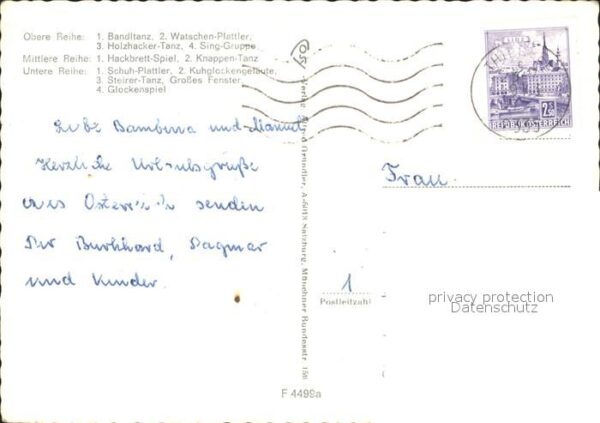 Obere Reihe: 1. Bandltanz, 2. Watschen-Plattler,
3. Holzhacker-Tanz, 4. Sing-Gruppe
Mittlere Reihe: 1. Hackbrett-Spiel, 2. Knappen-Tanz
Untere Reihe: 1. Schuh-Plattler, 2. Kuhglockengeläute,
3. Steirer-Tanz, Großes Fenster,
4. Glockenspiel
Liebe Bambina und
Herzliche Urlaubsgrüße
aus Österreich senden
Dir Burkhard, Dagmar
und Kinder.
Verlag Gründler, A-5013 Salzburg, Münchner Bundesstr. 156
LINZ
2.50
REPUBLIK ÖSTERREICH
Frau
1
Postleitzahl
privacy protection
Datenschutz
F 4499a